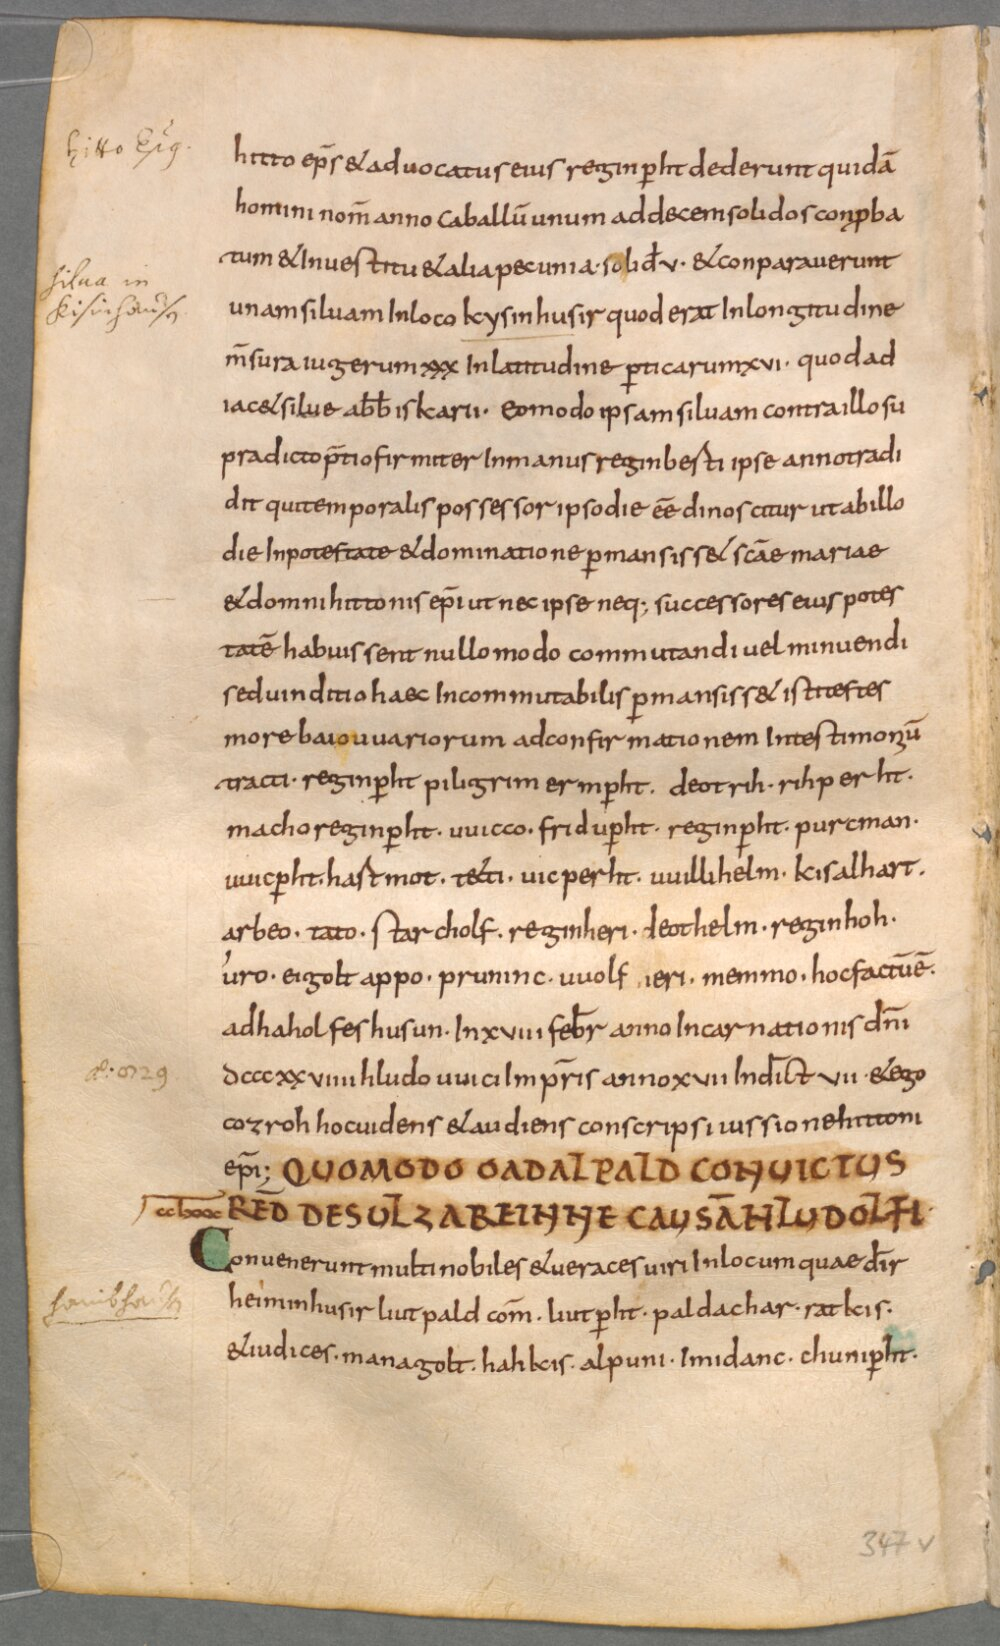 hitto Epi͞g.
hitto ep̄s & aduocatus eius reginp̱ht dederunt quidā
homini nom̄ anno caballū unum addecem solidos conp̱ba
tum & Inuestitu & alia pecunia · solid̄ · v · & conparauerunt
silua in
kisinhausn
unam siluam Inloco kysinhusir quod erat Inlongitudine
m̄sura iugerum xxx Inlatitudine p̱ticarum xvi · quod ad
iac& silue ab̄b̄is karii · Eomodo ipsam siluam contra illo su
pradicto p̄tio firmiter Inmanus reginbesti ipse anno tradi
dit quitemporalis possessor ipso die eē dinoscitur ut abillo
die Inpotestate & dominatione p̱mansiss& scāe mariae
& domni hittonis ep̄i ut nec ipse neq; successores eius potes
tatē habuissent nullomodo commutandi uel minuendi
sed uinditio haec Incommutabilis p̱mansiss& isti testes
more baiouuariorum adconfirmationem Intestimoniū
tracti · reginp̱ht piligrim ermp̱ht · deotrih · rihperht ·
macho reginp̱ht · uuicco · fridup̱ht · reginp̱ht · purcman ·
uuicp̱ht · hastmot · t&ti · uicperht · uuillihelm · kisalhart ·
arbeo · tato · starcholf · reginheri · deothelm · reginhoh ·
uro · eigolt appo · pruninc · uuolf ieri · memmo · hoc factū ē ·
adhaholfeshusun · Inxviii feb̄r anno Incarnationis dn̄i
aº: 829
dcccxxviiii hludouuici Imp̄ris anno xvii Ind̄ict vii · & ego
cozroh hoc uidens & audiens conscripsi iussione hittoni
ep̄i; QUOMODO OADALPALD CONUICTUS
cclxxx RED̄ DESULZAREINNE CAUSĀ HLUDOLFI ·
Conuenerunt multi nobiles & ueraces uiri Inlocum quae d̄r
hainhausn
heiminhusir liutpald com̄ · liutp̱ht · paldachar · ratkis ·
& iudices · managolt · hahkis · alpuni · Imidanc · chunip̱ht ·
347 v